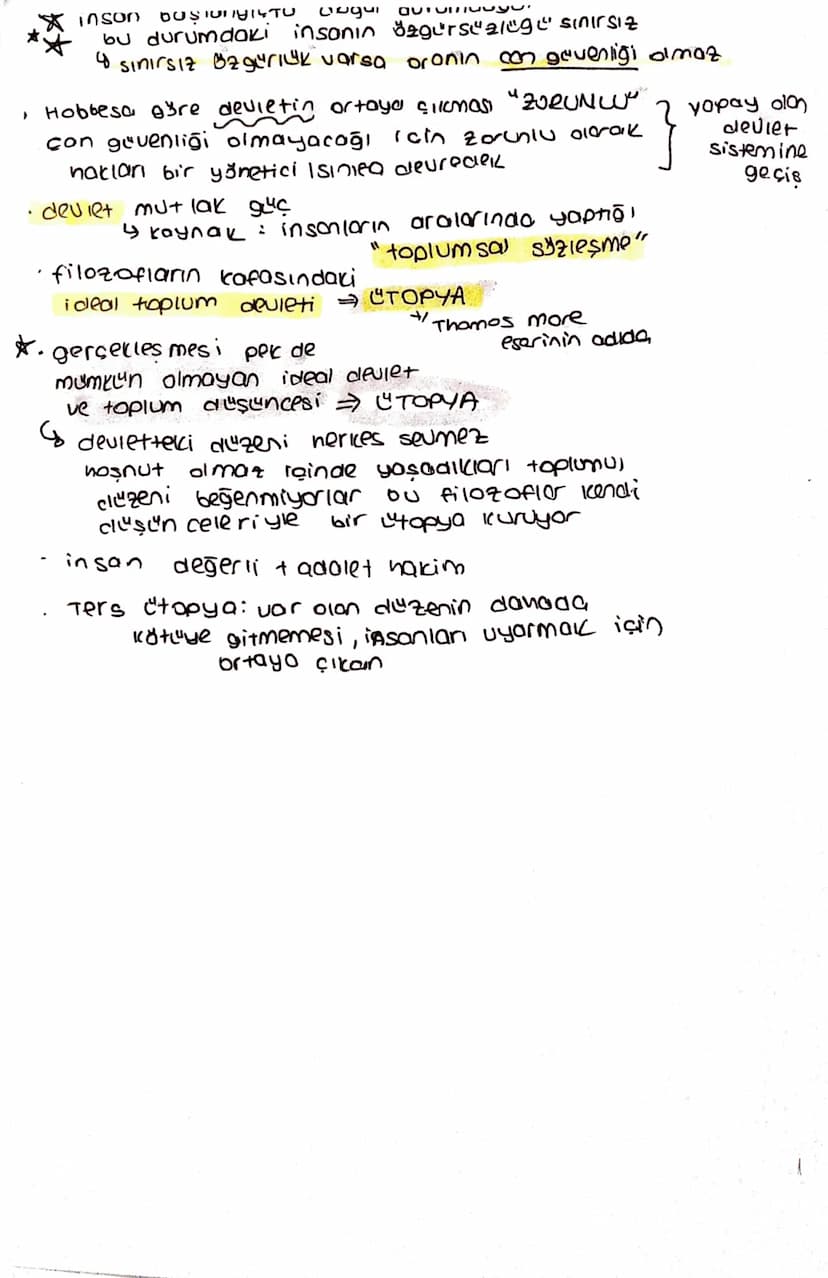 insan başlangıçta doğal durumdaydı.
bu durumdaki insanın özgürsüzlüğü sınırsız
↳ sınırsız özgürlük varsa oranın can güvenliği olmaz
Hobbesa göre devletin ortaya çıkması "ZORUNLU"
can güvenliği olmayacağı için zorunlu olarak
hakları bir yönetici sınıfa devredecek
} yapay olan
devlet
sistemine
geçiş
· devlet mutlak güç
↳ kaynak : insanların aralarında yaptığı
"toplumsal sözleşme"
· filozofların kafasındaki
ideal toplum devleti ⇒ ÜTOPYA
Thomas more
eserinin adıda
· gerçekleşmesi pek de
mümkün olmayan ideal devlet
ve toplum düşüncesi ⇒ ÜTOPYA
↳ devletteki düzeni herkes sevmez
hoşnut olmaz içinde yaşadıkları toplumu,
düzeni beğenmiyorlar bu filozoflar kendi
düşünceleriyle bir ütopya kuruyor
- insan değerli + adalet hakim
. Ters ütopya: var olan düzenin dahada
kötüye gitmemesi, insanları uyarmak için
ortaya çıkan